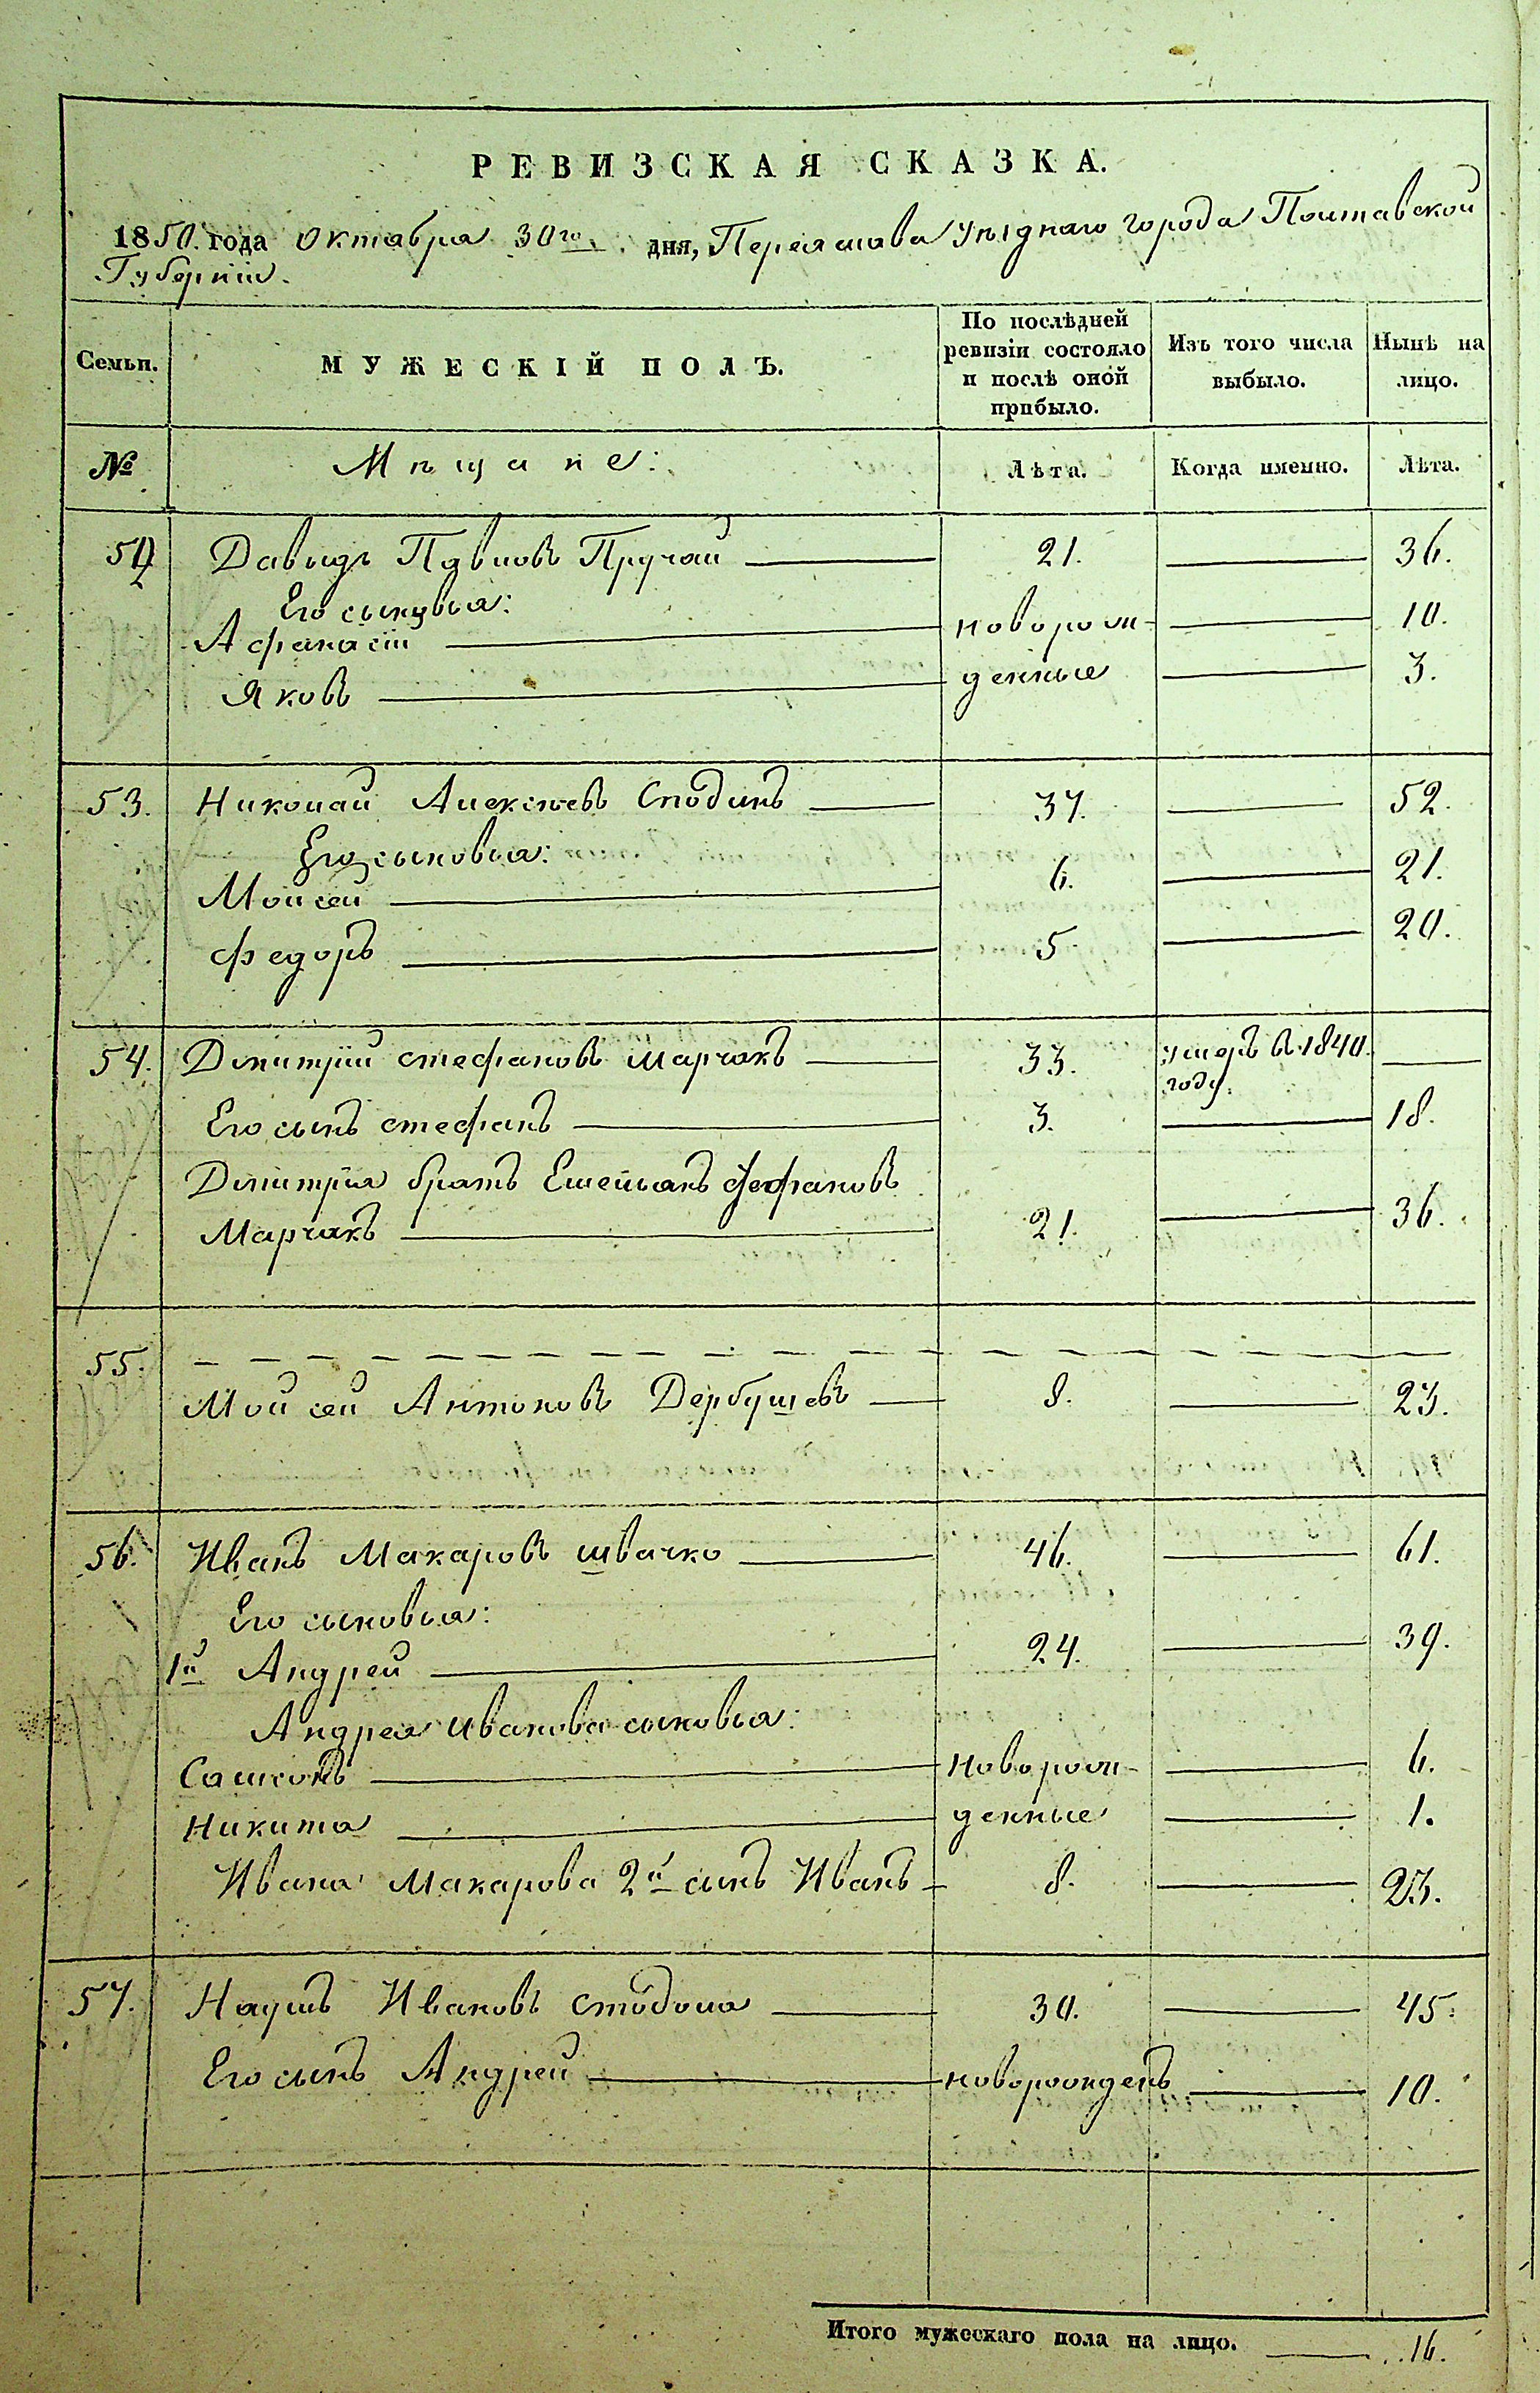 РЕВИЗСКАЯ СКАЗКА.
1850. года Октября 30го. дня, Переяслава Уѣзднаго города Полтавской
Губерніи.
Семьи.
МУЖЕСКІЙ ПОЛЪ.
По послѣдней ревизіи состояло и послѣ оной прибыло.
Изъ того числа выбыло.
Нынѣ на лицо.
№ Мѣщане: Лѣта. Когда именно. Лѣта.
52 Давыдъ Павловъ Пручай 21. 36.
Его сыновья:
Афанасій новорож- 10.
Яковъ денные 3.
53. Николай Алексѣевъ 37. 52.
Его сыновья:
Моисей 6. 21.
Федоръ 5 20.
54. Дмитрій Стефановъ Марчакъ 33. умеръ в 1840.
году.
Его сынъ Стефанъ 3. 18.
Дмитрія братъ Емельянъ Стефановъ
Марчакъ 21. 36.
55.
Моисей Антоновъ Дербушевъ 8. 23.
56. Иванъ Макаровъ Швачко 46. 61.
Его сыновья:
1й Андрей 24. 39.
Андрея Иванова сыновья:
Самсонъ новорож- 6.
Никита денные 1.
Ивана Макарова 2й сынъ Иванъ 8. 23.
57. Наумъ Ивановъ Стодола 30. 45.
Его сынъ Андрей новорожденъ 10.
Итого мужескаго пола на лицо. 16.